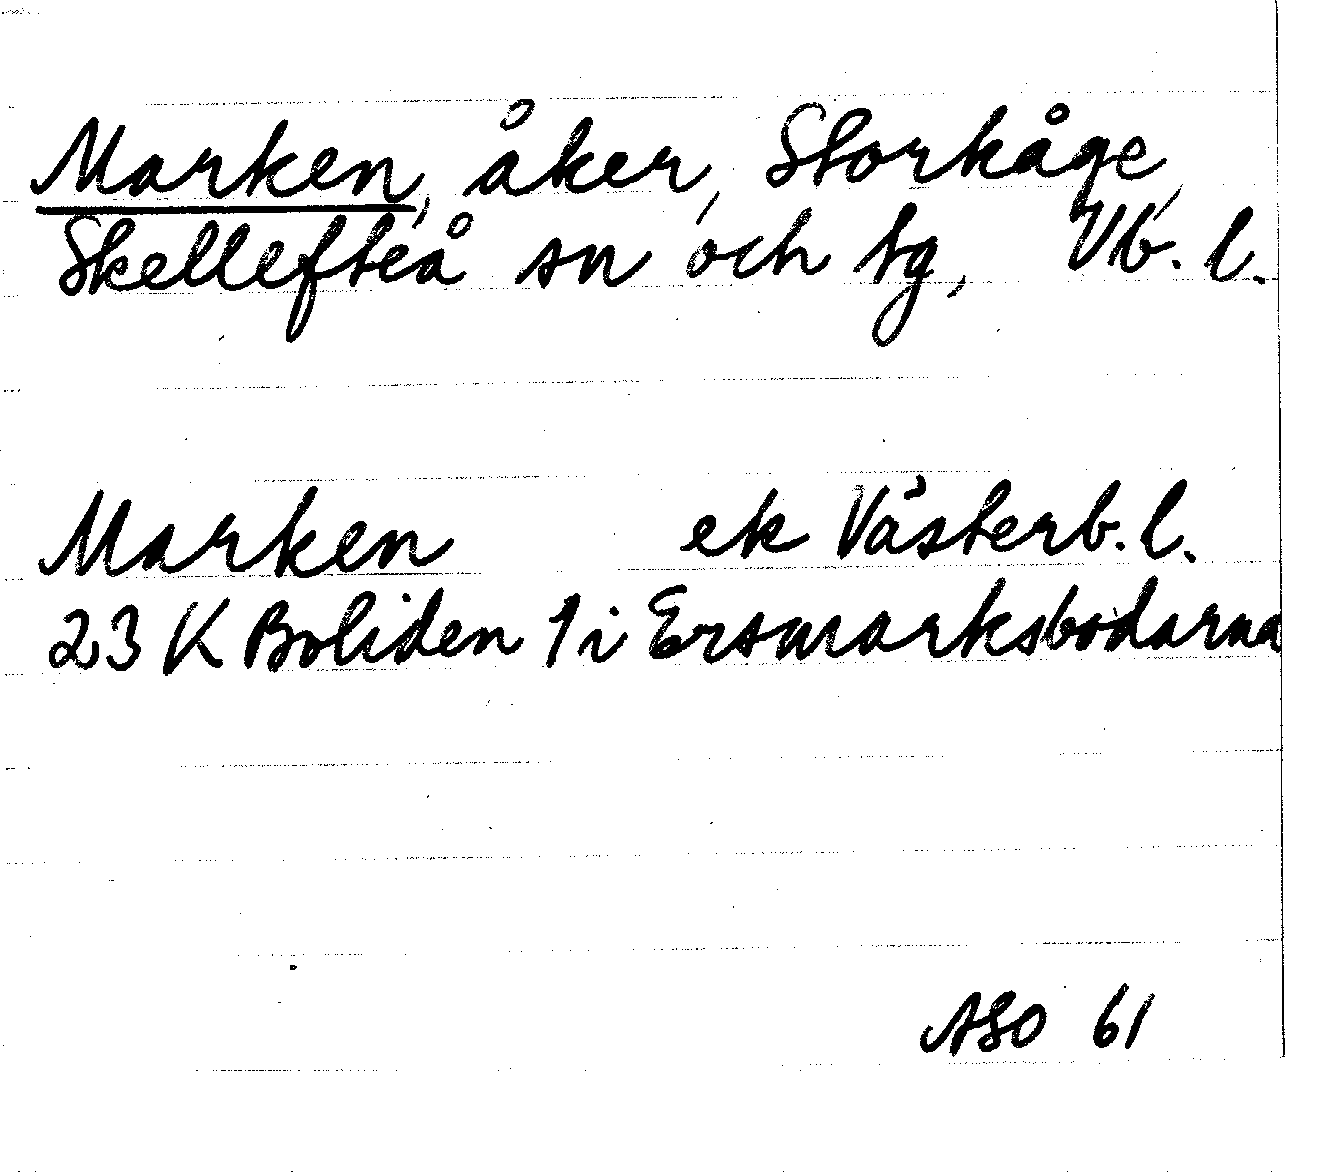 Marken, åker, Storkåge,
Skellefteå sn och tg, Vb. l.
Marken ek Västerb. l.
23 K Boliden 1 i Ersmarksbodarna
ASO 61